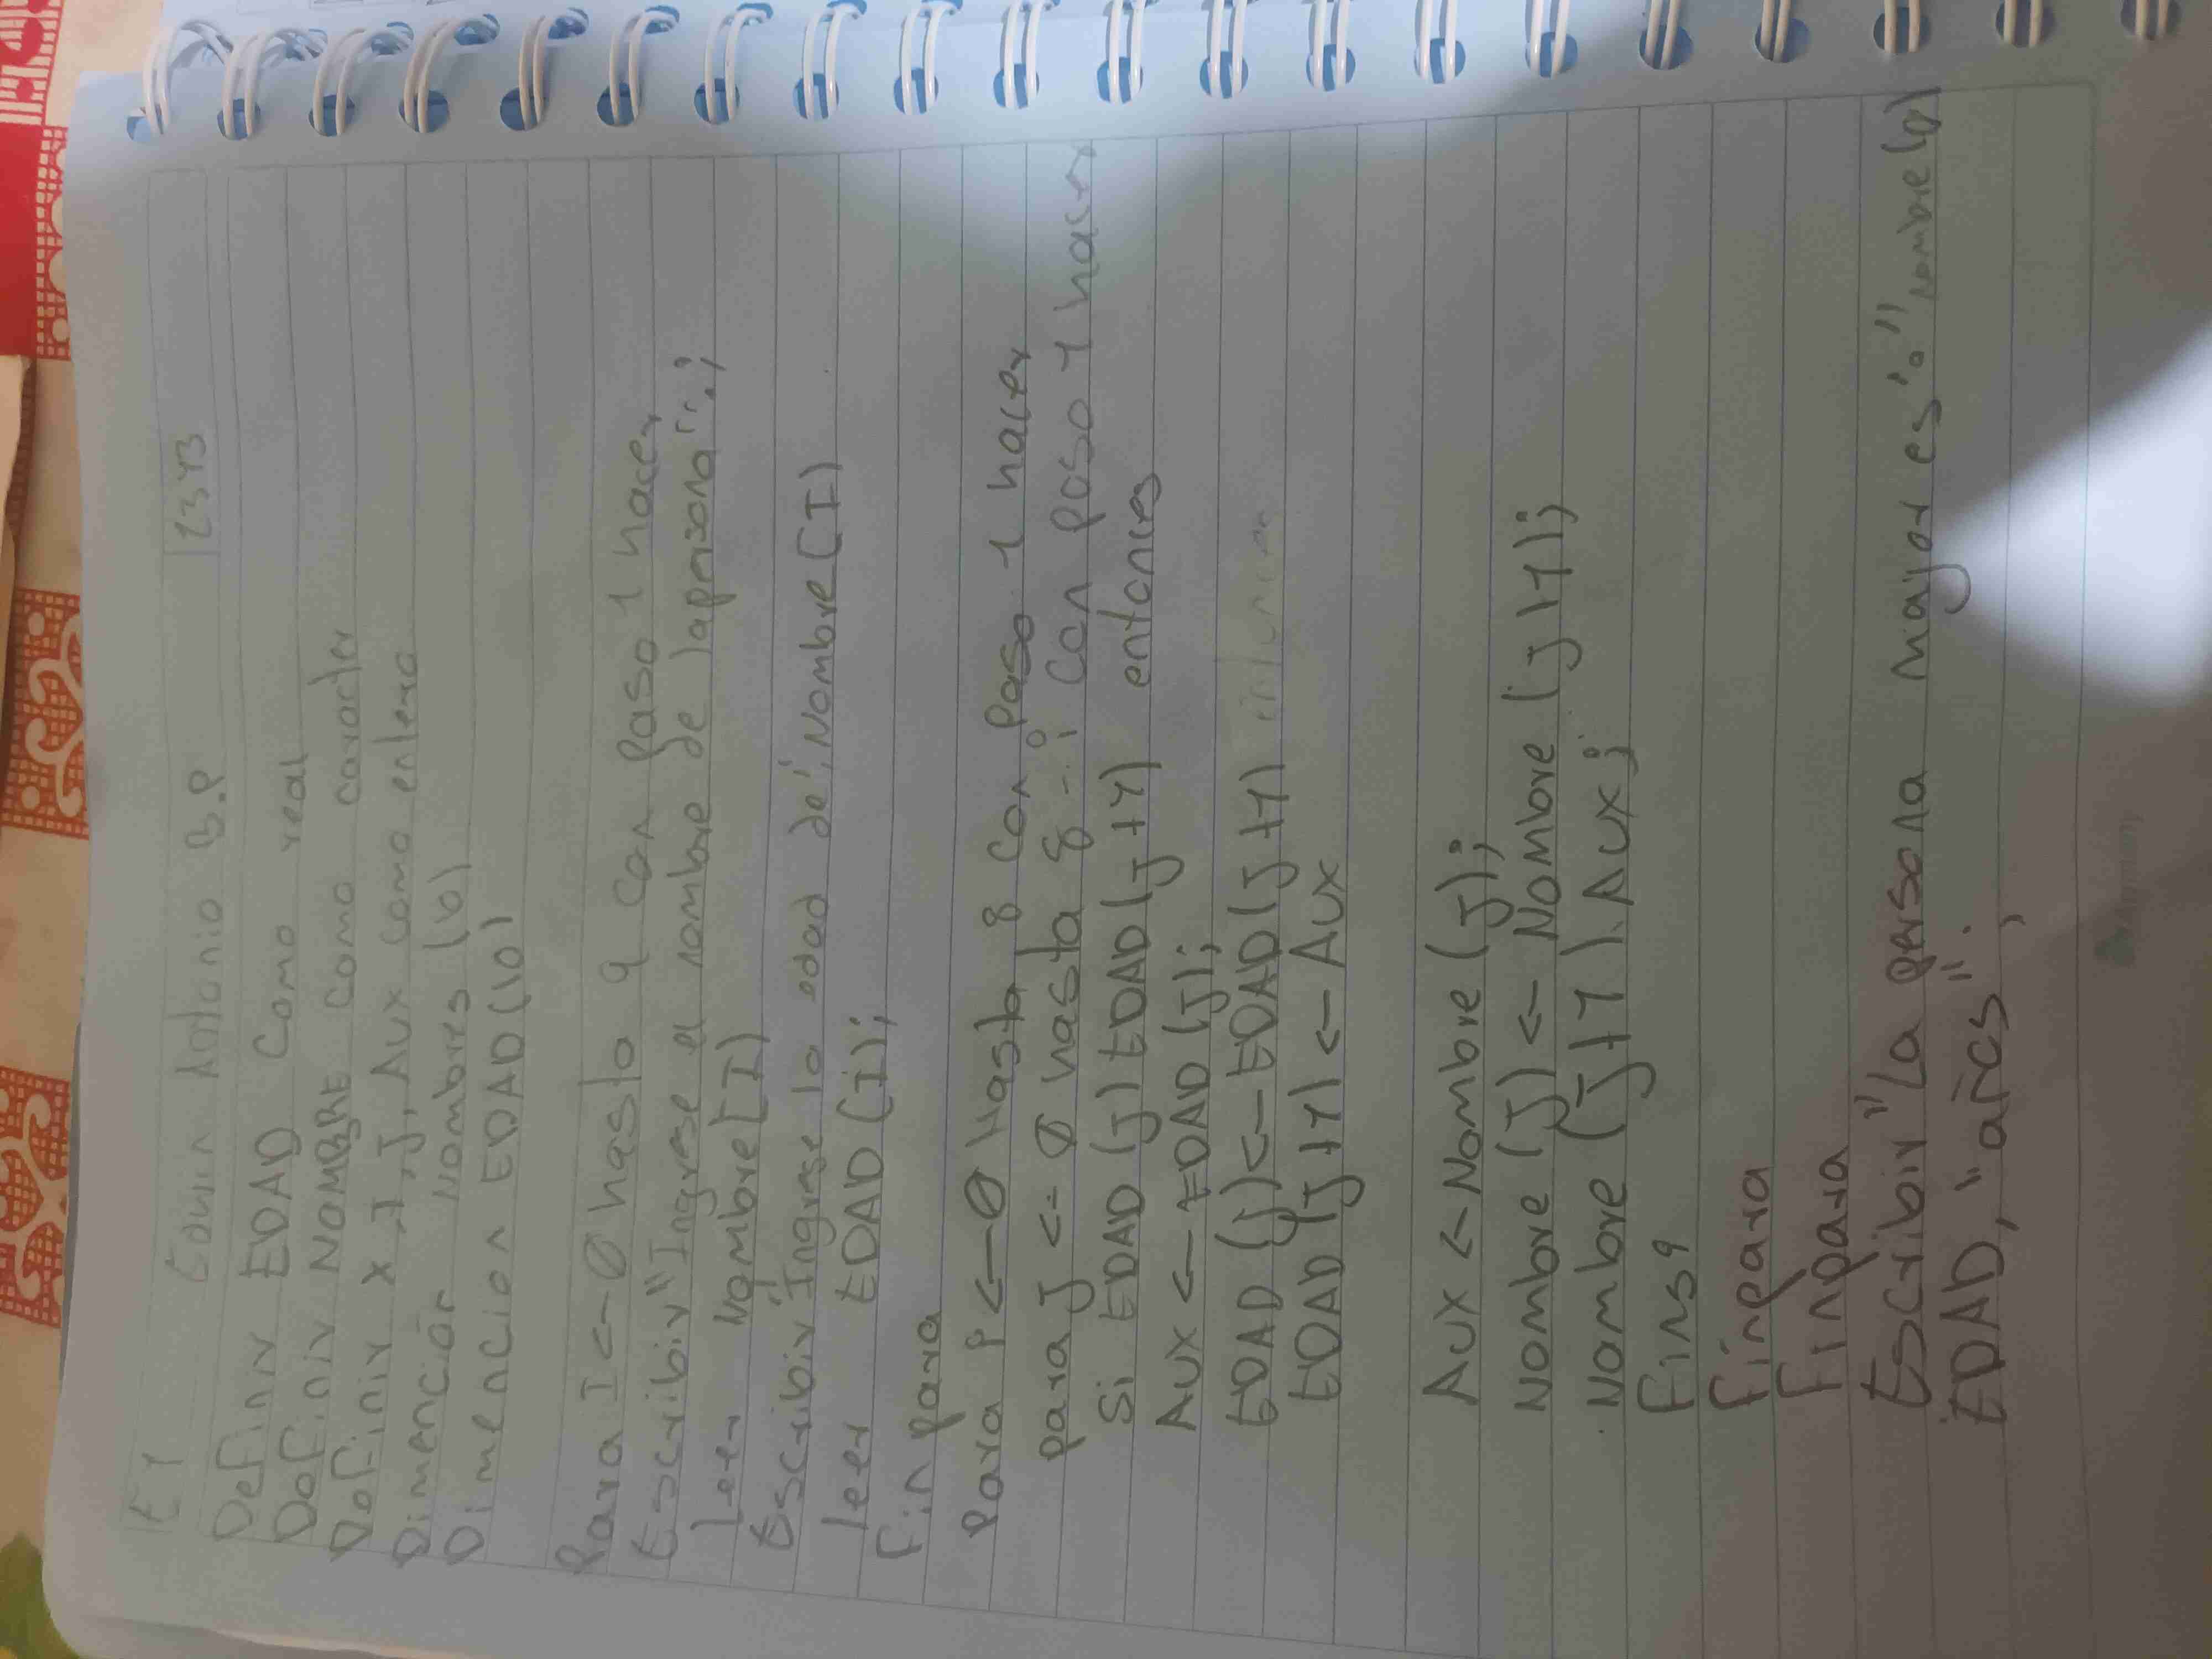 E1 Edwin Antonio B.P 1343
Definir EDAD Como real
Definir NOMBRE como caracter
Definir x, I, J, Aux como entero
Dimención Nombres (10)
Dimención EDAD (10)
Para I <- 0 hasta 9 con paso 1 hacer
Escribir "Ingrese el nombre de la persona:";
leer Nombre [I]
Escribir "Ingrese la edad de", Nombre (I)
leer EDAD (I);
Finpara
Para P <- 0 Hasta 8 con paso 1 hacer
para J <- 0 hasta 8 - i con paso 1 hacer
Si EDAD (J) EDAD (J+1) entonces
Aux <- EDAD (J);
EDAD (J) <- EDAD (J+1)
EDAD (J+1) <- Aux
Aux <- Nombre (J);
Nombre (J) <- Nombre (J+1);
Nombre (J+1). Aux;
Finsi
Finpara
Finpara
Escribir "la persona mayor es:" Nombre (0)
EDAD, "años".